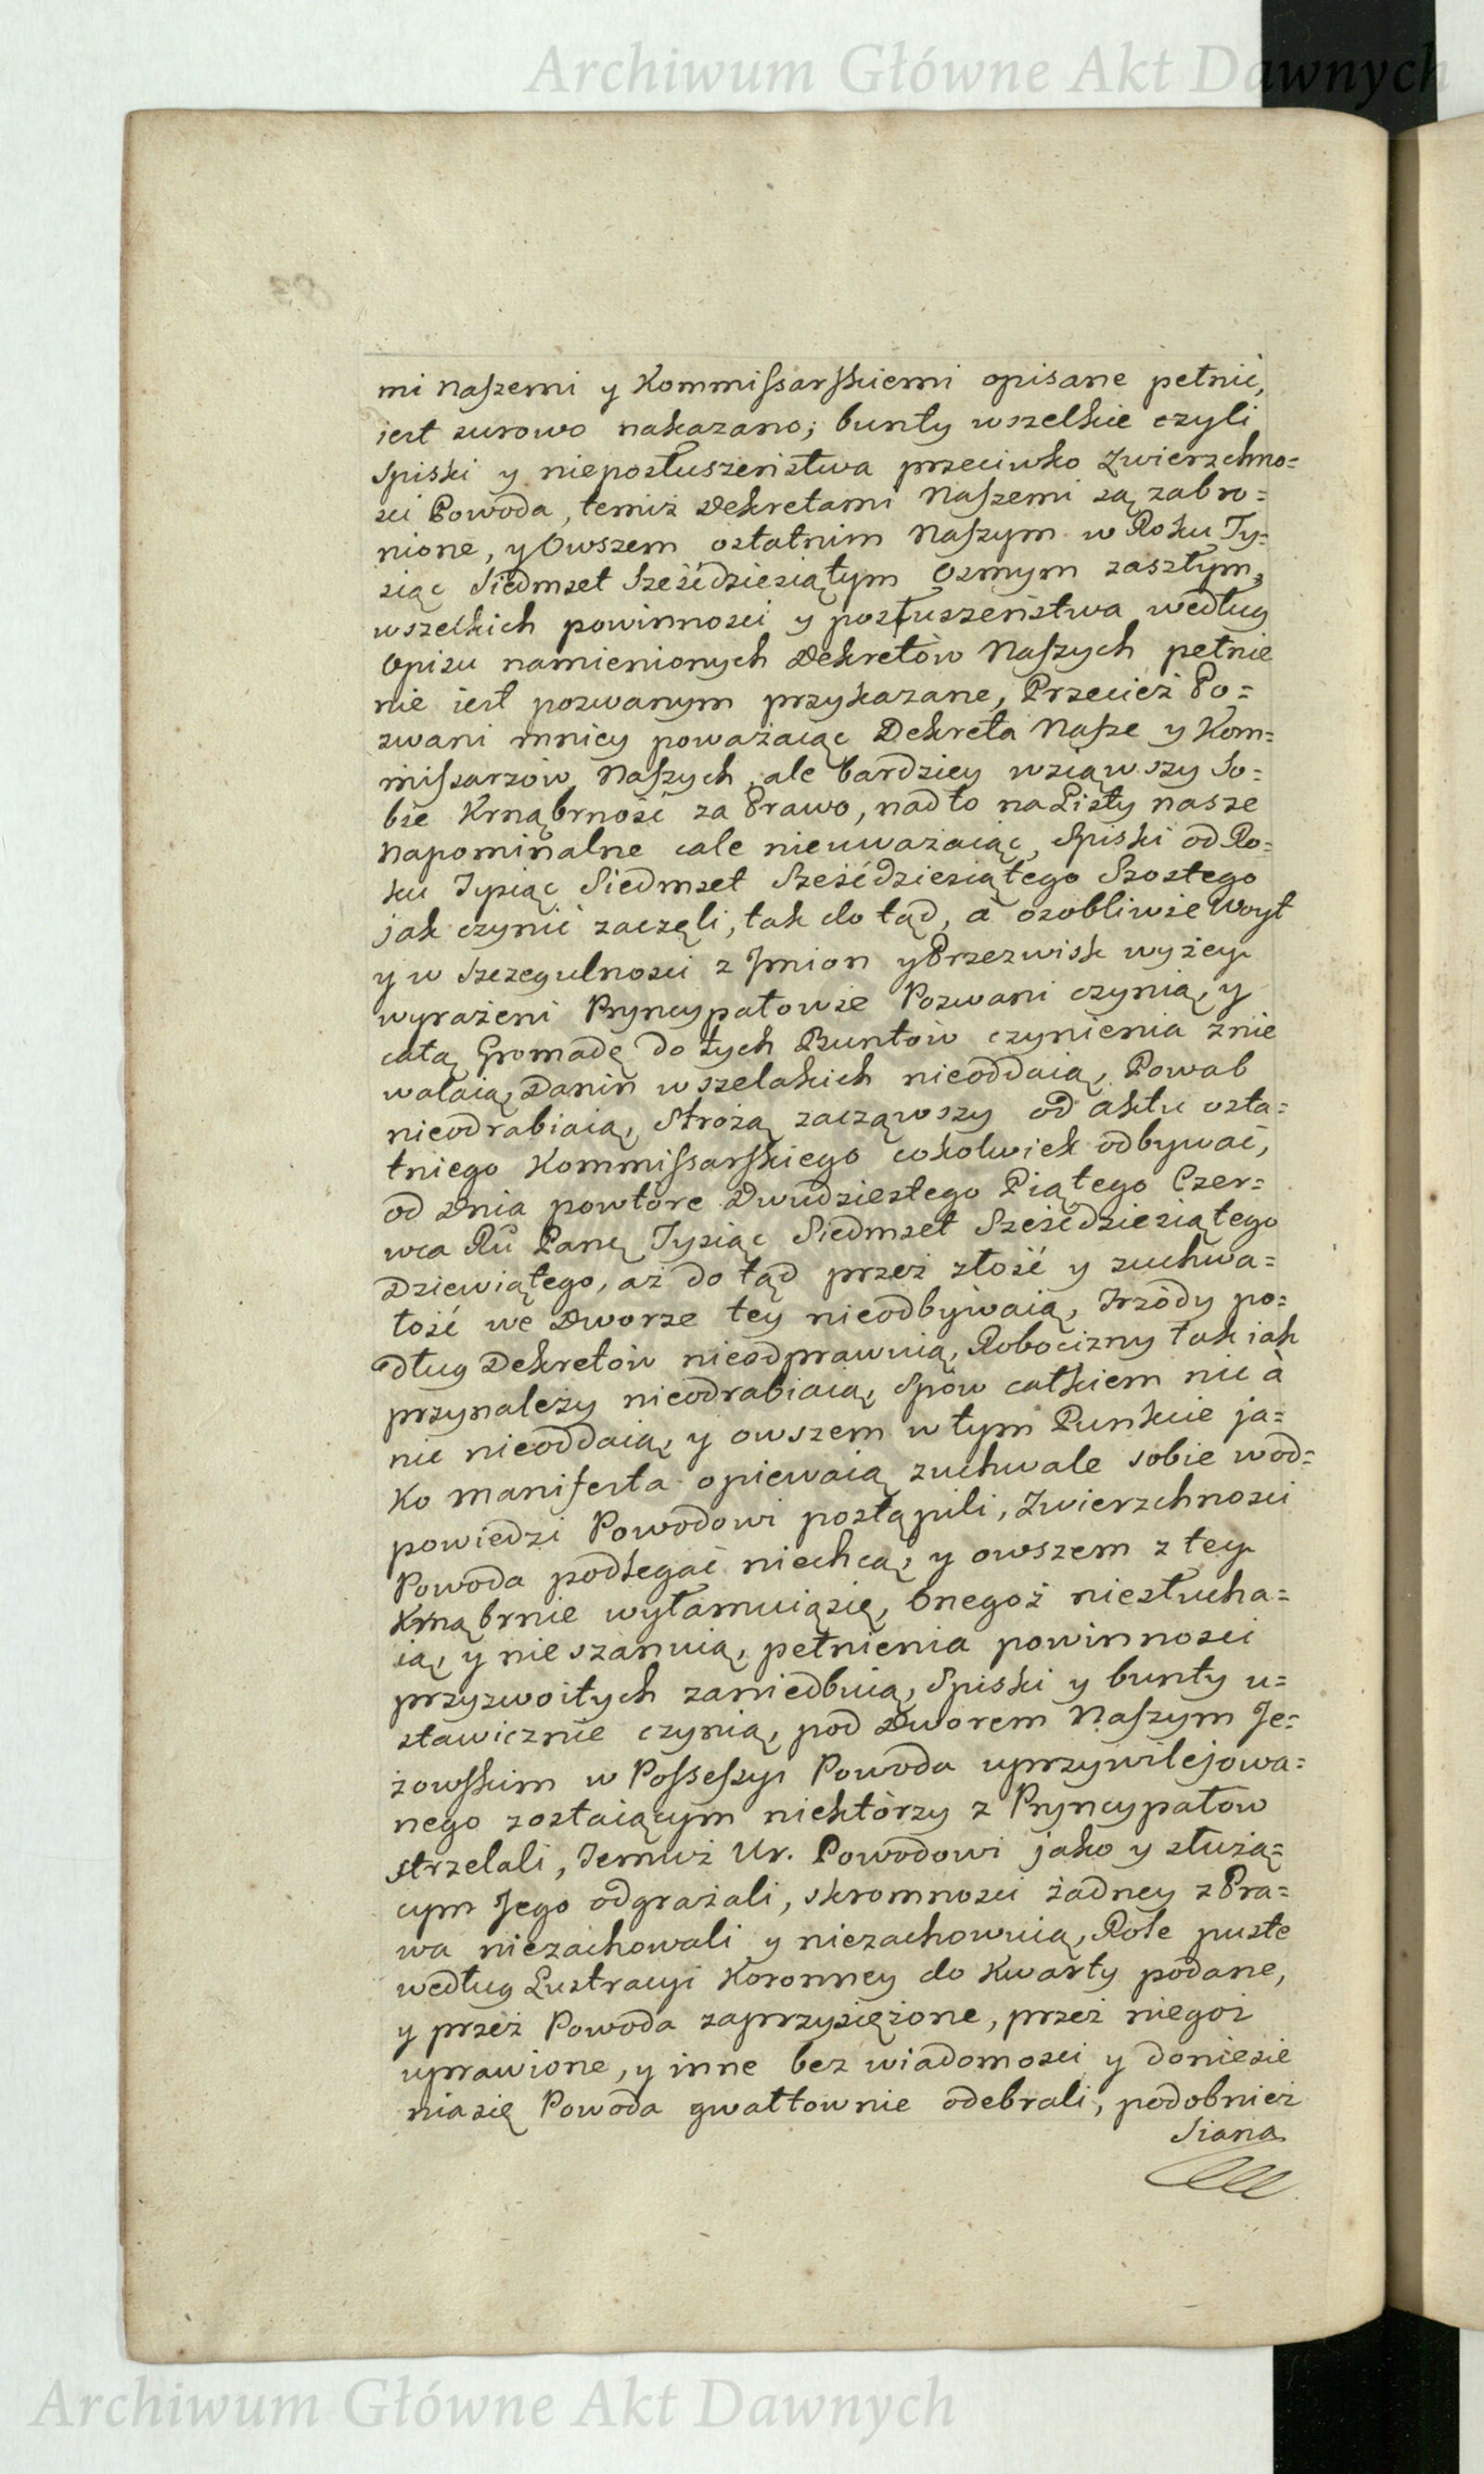 Archiwum Główne Akt Dawnych
mi naszemi y Kommissarskiemi opisane pełnić,
iest surowo nakazano; bunty wszelkie czyli
Spiski y nieposłuszeństwa przeciwko Zwierzchno=
sci Powoda, temiż Dekretami Naszemi są zabro=
nione, y Owszem ostatnim Naszym w Roku Ty=
siąc Siedmset Sześćdziesiątym Osmym zaszłym,
wszelkich powinnosci y posłuszeństwa według
Opisu namienionych Dekretów Naszych pełnie
nie iest pozwanym przykazane, Przecież Po=
zwani mniey poważaiąc Dekreta Nasze y Kom=
missarzów Naszych, ale bardziey wziąwszy So=
bie Krnąbrność za Prawo, nadto na Listy nasze
Napominalne cale nieuważaiąc, Spiski od Ro=
ku Tysiąc Siedmset Sześćdziesiątego Szostego
jak czynić zaczęli, tak do tąd, a osobliwie Woyt
y w szczegulnosci z Jmion y Przezwisk wyżey
wyrażeni Pryncypałowie Pozwani czynią, y
całą Gromadę do tych Buntów czynienia znie
walaią, Danin wszelakich nieoddaią, Powab
nieodrabiaią, Strożą zacząwszy od aktu osta=
tniego Kommissarskiego cokolwiek odbywać,
od Dnia powtore Dwudziestego Piątego Czer=
wca Rū Panę Tysiąc Siedmset Sześćdziesiątego
Dziewiątego, aż do tąd przez złość y zuchwa=
łość we Dworze tey nieodbywaią, Trzody po=
dług Dekretów nieodprawuią, Robocizny tak iak
przynależy nieodrabiaią, Spów całkiem nic à
nic nieoddaią, y owszem w tym Punkcie ja=
ko manifesta opiewaią zuchwale sobie wod=
powiedzi Powodowi postąpili, Zwierzchnosci
Powoda podlegać niechcą, y owszem z tey
Krnąbrnie wyłamuiąsię, Onegoż niesłucha=
ią, y nie szanuią, pełnienia powinnosci
przyzwoitych zaniedbuią, Spiski y bunty u=
stawicznie czynią, pod Dworem Naszym Je=
żowskim w Possessyi Powoda uprzywilejowa=
nego zostaiącym niektórzy z Pryncypałow
strzelali, Temuż Ur. Powodowi jako y służą=
cym Jego odgrażali, skromnosci żadney z Pra=
wa niezachowali y niezachowuią, Role puste
według Lustracyi Koronney do Kwarty podane,
y przez Powoda zaprzysiężone, przez niegoż
uprawione, y inne bez wiadomosci y doniesie
niasię Powoda gwałtownie odebrali, podobnież
Siana
Archiwum Główne Akt Dawnych